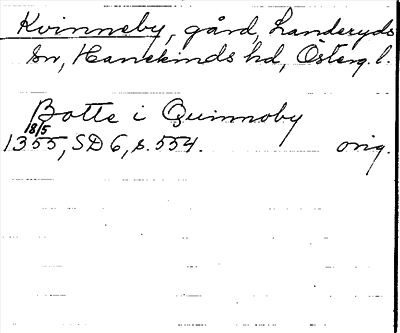 Kvinneby, gård, Landeryds
sn, Hanekinds hd, Österg. l.
Botte i Quinnoby
18/5
1355, SD 6, s. 554. orig.